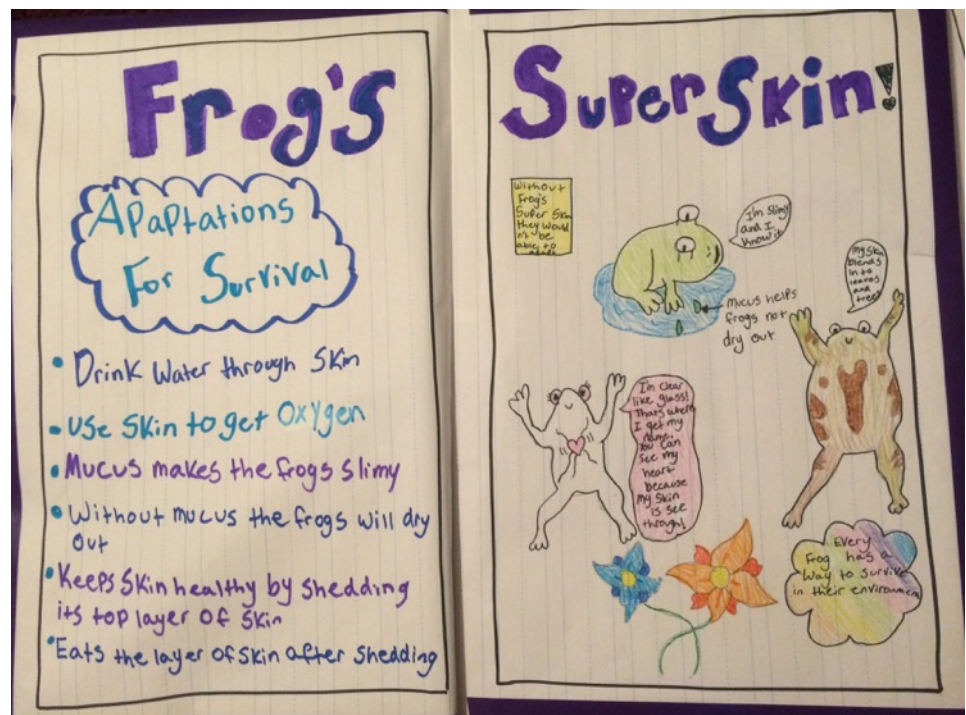 Frog's
Apaptations
For Survival
• Drink Water through Skin
• Use Skin to get Oxygen
• Mucus makes the frogs slimy
• Without mucus the frogs will dry
out
• Keeps Skin healthy by shedding
its top layer of skin
• Eats the layer of skin after shedding
Super Skin!
Without
Frog's
Super Skin
they would
n't be
able to
I'm Slimy
and I
know it
Mucus helps
frogs not
dry out
My skin
blends
in to
leaves
and
trees
I'm Clear
like glass!
That's where
I get my
name.
You can
see my
heart
because
my skin
is see
through!
Every
Frog has a
way to survive
in their environment